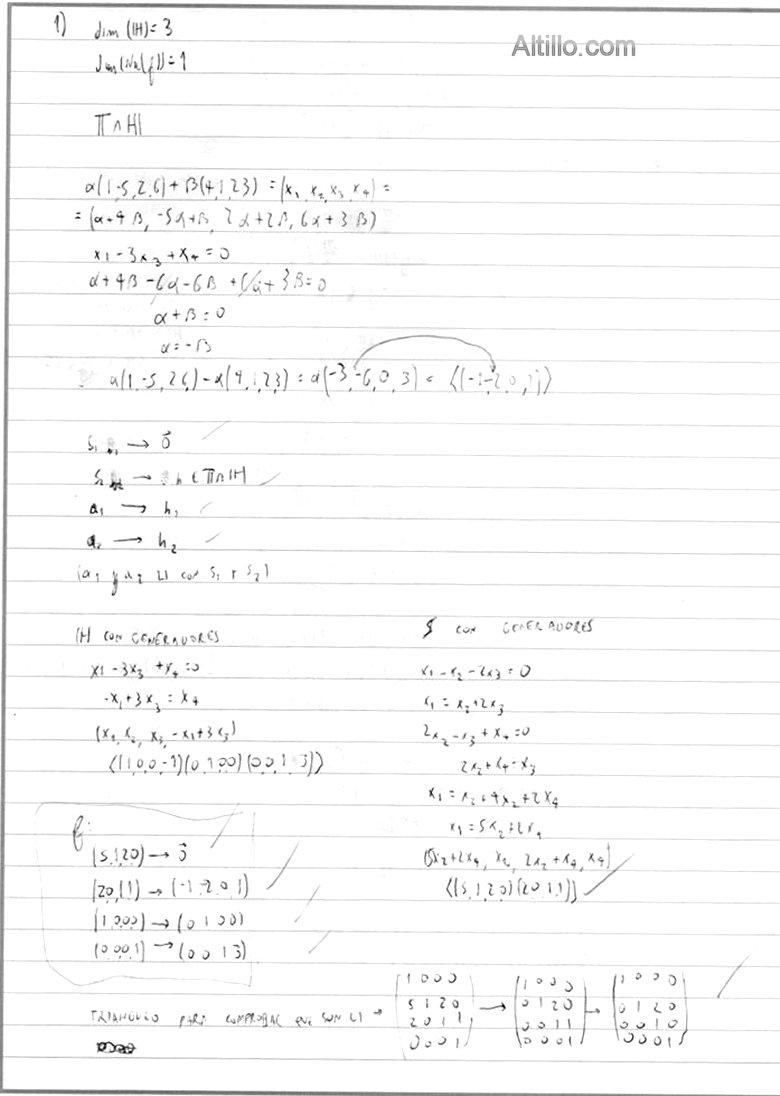 1) dim (H)= 3
Altillo.com
dim(Nu(f))=1
π ∩ H
α(1,-5,2,6) + β(4,1,2,3) = (x₁, x₂, x₃, x₄) =
= (α+4β, -5α+β, 2α+2β, 6α+3β)
x₁ - 3x₃ + x₄ = 0
α + 4β - 6α - 6β + 6α + 3β = 0
α + β = 0
α = -β
α(1,-5,2,6) - α(4,1,2,3) = α(-3,-6,0,3) = <(-1-2,0,1)>
s₁ → 0⃗
s₂ → h ∈ π∩H
a₁ → h₁
a₂ → h₂
(a₁ y a₂ LI con s₁ y s₂)
H CON GENERADORES
x₁ - 3x₃ + x₄ = 0
-x₁ + 3x₃ = x₄
(x₁, x₂, x₃, -x₁+3x₃)
<(1,0,0,-1)(0,1,0,0)(0,0,1,3)>
S CON GENERADORES
x₁ - x₂ - 2x₃ = 0
x₁ = x₂ + 2x₃
2x₂ - x₃ + x₄ = 0
2x₂ + x₄ = x₃
x₁ = x₂ + 4x₂ + 2x₄
x₁ = 5x₂ + 2x₄
(5x₂+2x₄, x₂, 2x₂+x₄, x₄)
<(5,1,2,0)(2,0,1,1)>
f:
(5,1,2,0) → 0⃗
(2,0,1,1) → (-1,-2,0,1)
(1,0,0,0) → (0 1 0 0)
(0,0,0,1) → (0 0 1 3)
TRIANGULO PARA COMPROBAR QUE SON LI → (1 0 0 0 / 5 1 2 0 / 2 0 1 1 / 0 0 0 1) → (1 0 0 0 / 0 1 2 0 / 0 0 1 1 / 0 0 0 1) → (1 0 0 0 / 0 1 2 0 / 0 0 1 0 / 0 0 0 1)